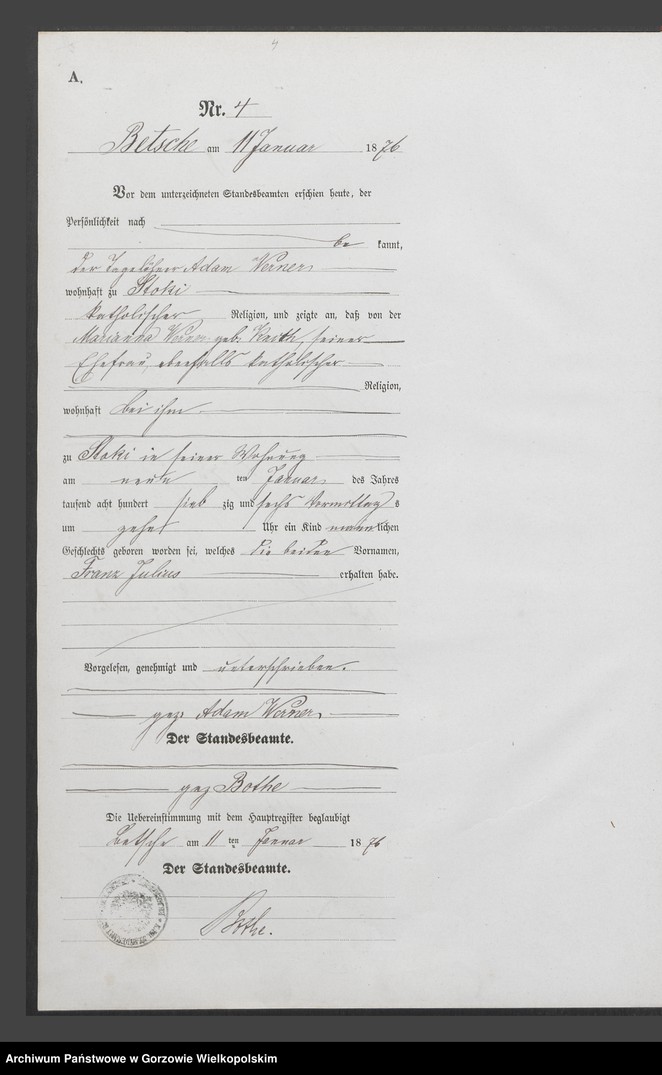 4
A.
Nr. 4
Betsche am 11 Januar 1876
Vor dem unterzeichneten Standesbeamten erschien heute, der
Persönlichkeit nach
be kannt,
der Tagelöhner Adam Werner
wohnhaft zu Stoki
katholischer Religion, und zeigte an, daß von der
Marianna Werner geb. seiner
Ehefrau, ebenfalls katholischer
Religion,
wohnhaft bei ihm
zu Stoki in seiner Wohnung
am neun ten Januar des Jahres
tausend acht hundert sieb zig und sechs Vormittag s
um zehn Uhr ein Kind männlichen
Geschlechts geboren worden sei, welches die beiden Vornamen,
Franz Julius erhalten habe.
Vorgelesen, genehmigt und unterschrieben.
gez. Adam Werner
Der Standesbeamte.
gez Bothe
Die Uebereinstimmung mit dem Hauptregister beglaubigt
Betsche am 11 ten Januar 1876
Der Standesbeamte.
Bothe.
Archiwum Państwowe w Gorzowie Wielkopolskim